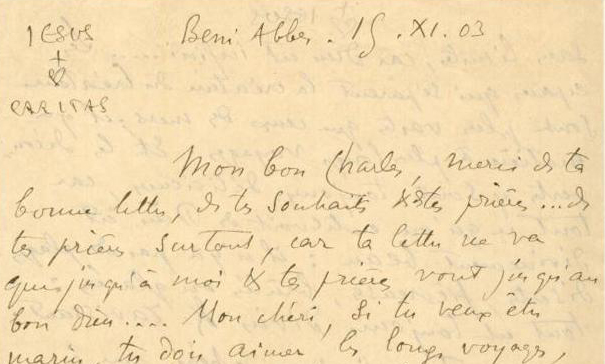 IESUS
CARITAS
Beni Abbès. 15.XI.03
Mon bon Charles, merci de ta
bonne lettre, de tes souhaits & de tes prières... de
tes prières surtout, car ta lettre ne va
que jusqu'à moi & tes prières vont jusqu'au
bon Dieu.... Mon chéri, si tu veux être
marin, tu dois aimer les longs voyages,